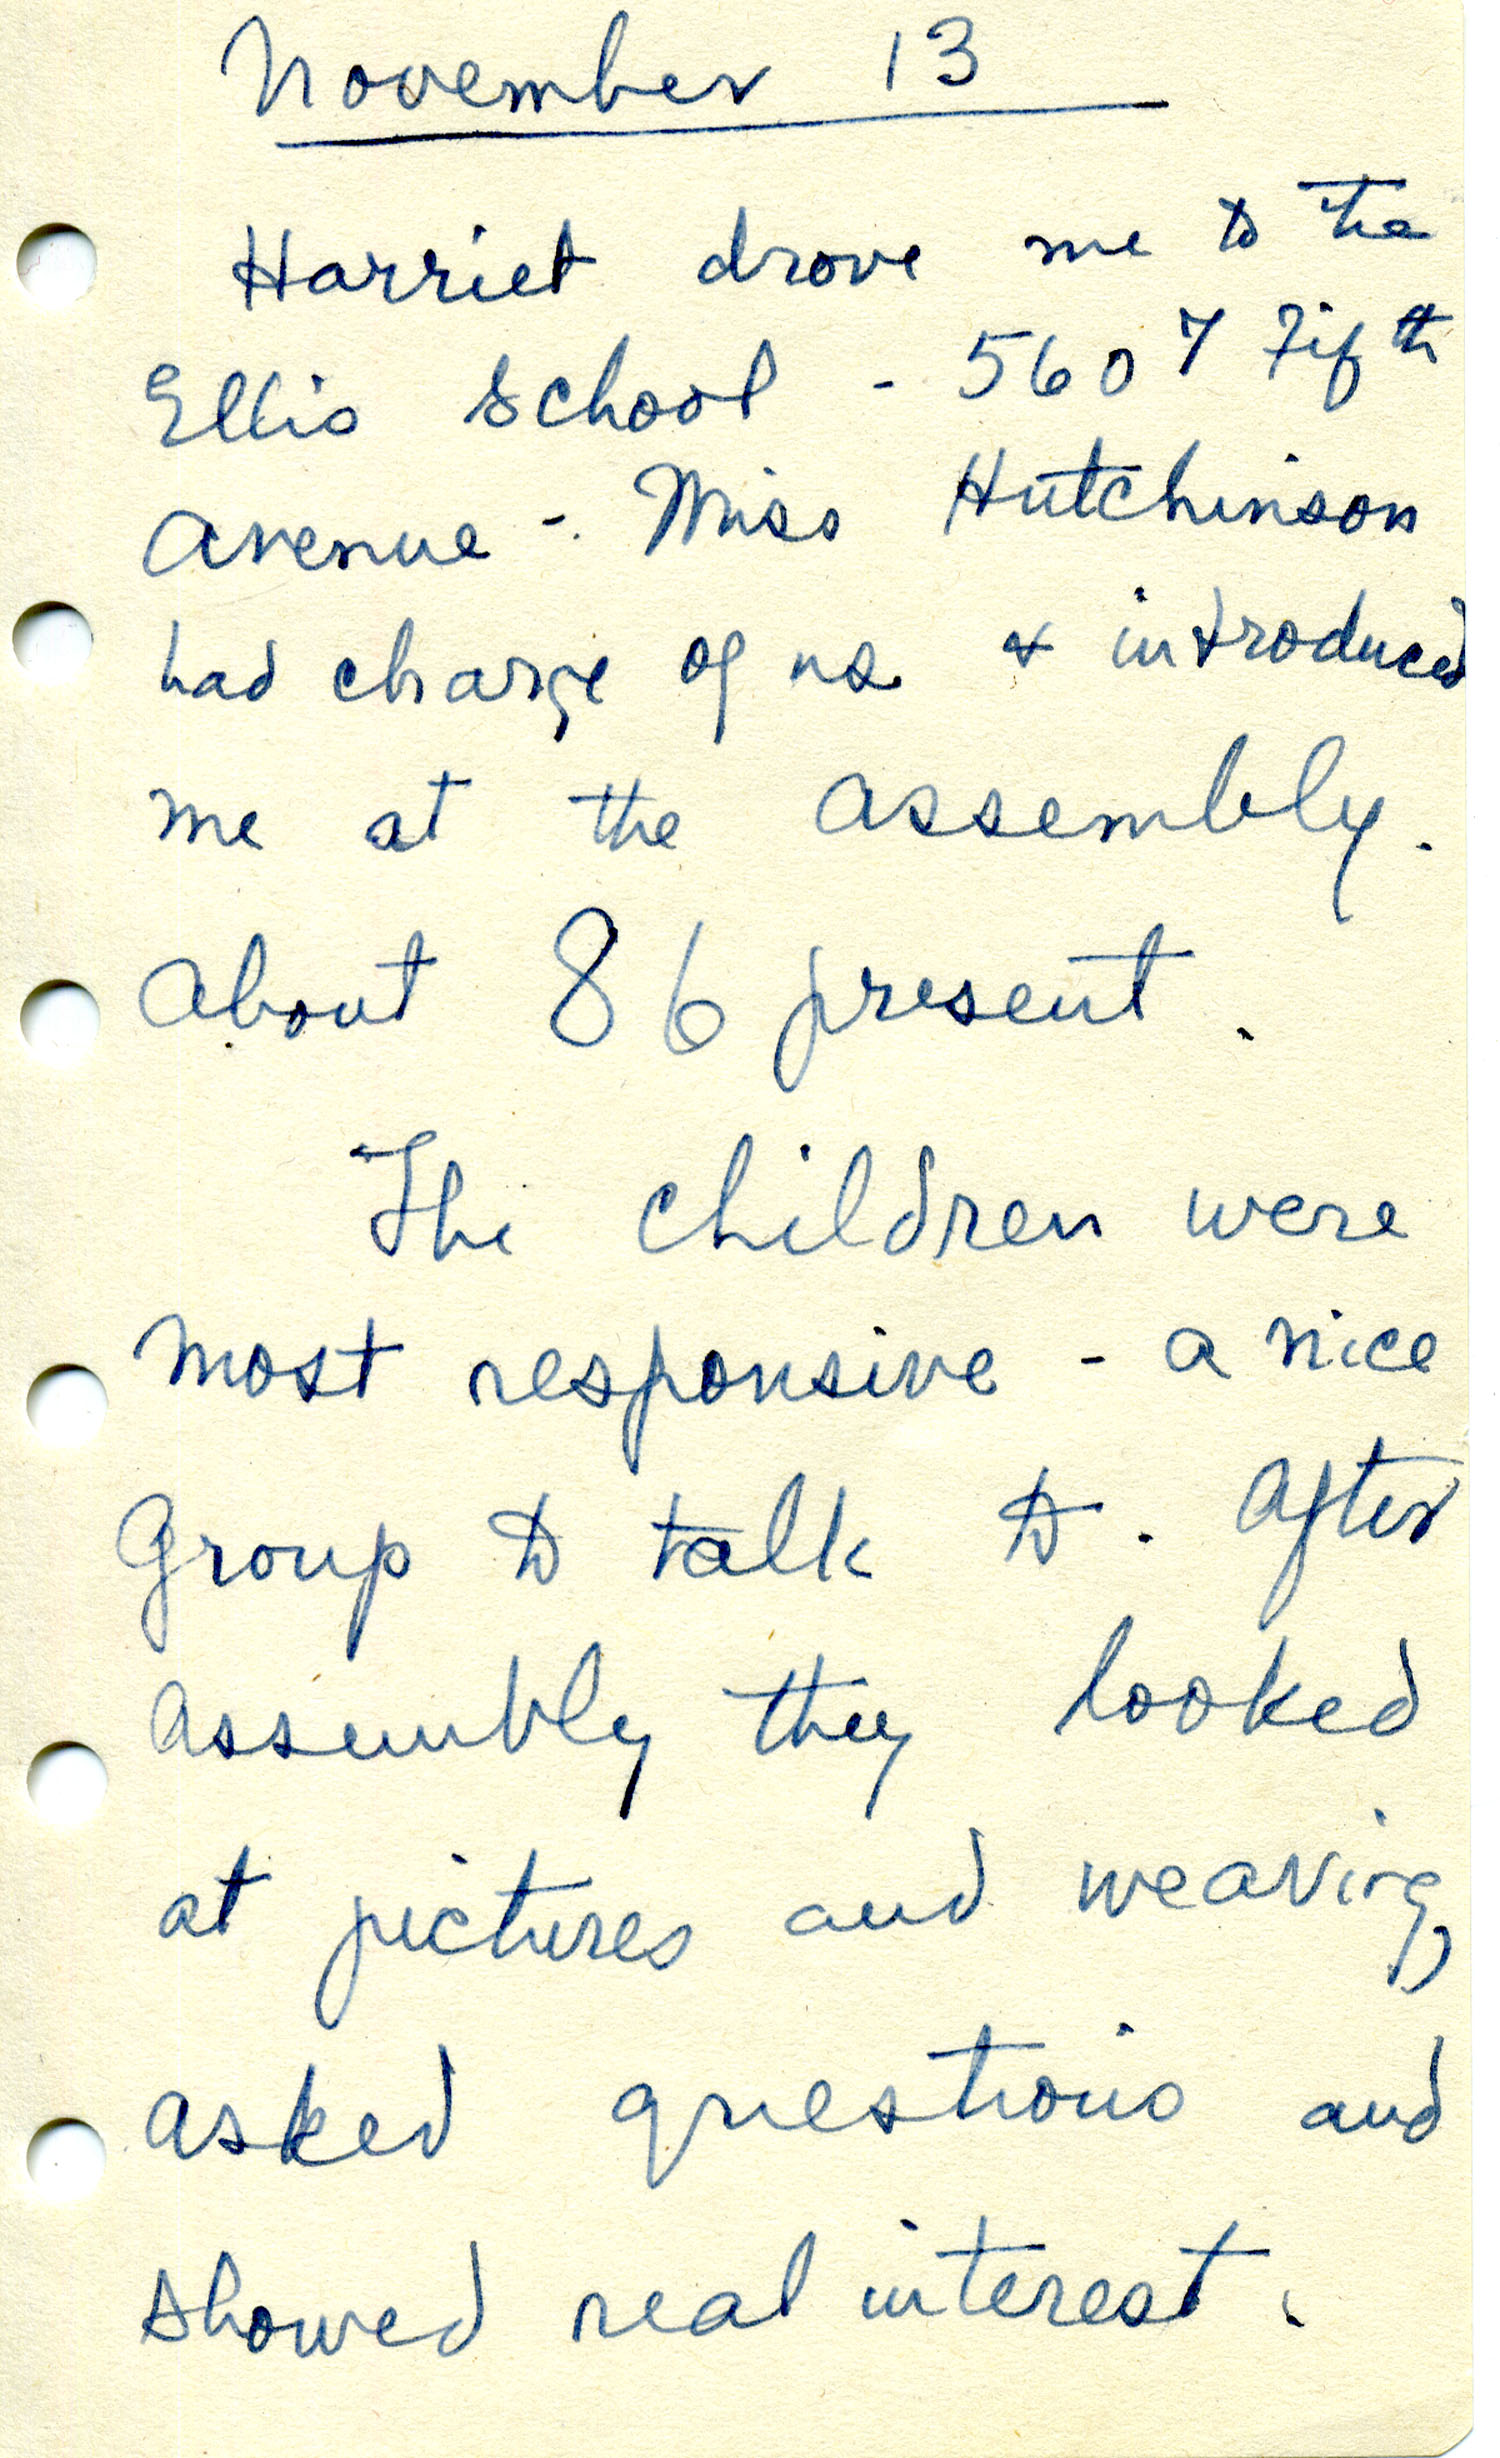 November 13
Harriet drove me to the
Ellis School - 5607 Fifth
Avenue - Miss Hutchinson
had charge of us & introduced
me at the assembly.
About 86 present.
The children were
most responsive - a nice
Group to talk to. After
assembly they looked
at pictures and weaving,
asked questions and
showed real interest.